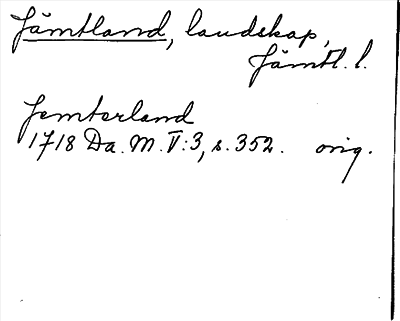 Jämtland, landskap,
Jämtl. l.
Jemterland
1718 Da. M. V:3, s. 352. orig.